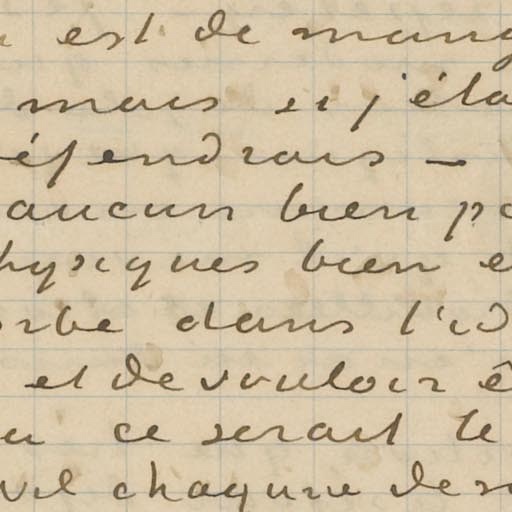 est de mang
mais si j'éta
éfendrais —
aucun bien pa
hysiques bien e
orbe dans l'id
et de vouloir ê
ce serait le
chaqune de